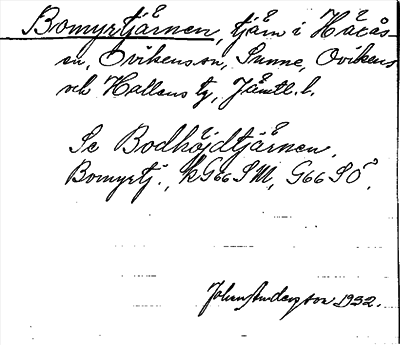 Bomyrtjärnen, tjärn i Häcås-
en, Ovikens sn, Sunne, Ovikens
och Hallens tg, Jämtl. l.
Se Bodhöjdtjärnen.
Bomyrtj., kG66SV, G66SÖ.
Johan Anderzson 1932.